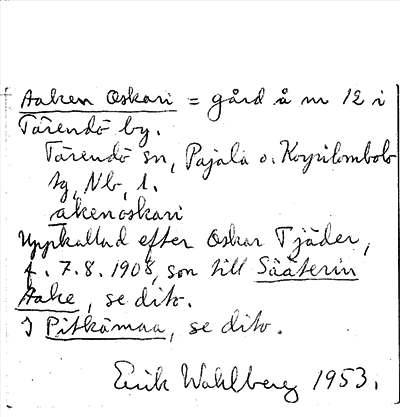 Aaken Oskari = gård å nr 12 i
Tärendö by.
Tärendö sn, Pajala o. Korpilombolo
tg, Nb, l.
akenoskari
Uppkallad efter Oskar Tjäder,
f. 7.8.1908, son till Sääterin
Aake, se dito.
I Pitkämaa, se dito.
Erik Wahlberg 1953.